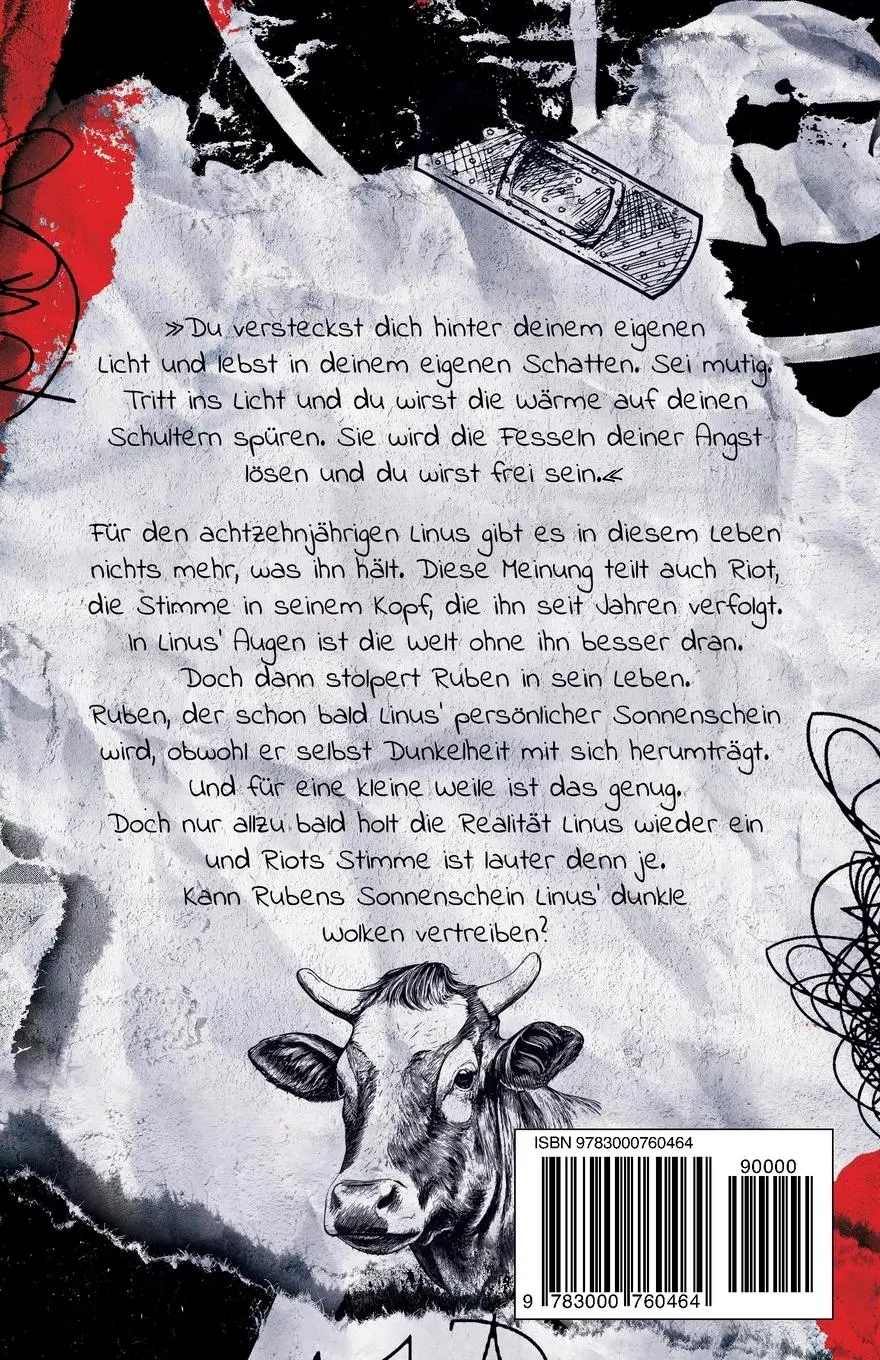 »Du versteckst dich hinter deinem eigenen
Licht und lebst in deinem eigenen Schatten. Sei mutig.
Tritt ins Licht und du wirst die Wärme auf deinen
Schultern spüren. Sie wird die Fesseln deiner Angst
lösen und du wirst frei sein.«
Für den achtzehnjährigen Linus gibt es in diesem Leben
nichts mehr, was ihn hält. Diese Meinung teilt auch Riot,
die Stimme in seinem Kopf, die ihn seit Jahren verfolgt.
In Linus' Augen ist die Welt ohne ihn besser dran.
Doch dann stolpert Ruben in sein Leben.
Ruben, der schon bald Linus' persönlicher Sonnenschein
wird, obwohl er selbst Dunkelheit mit sich herumträgt.
Und für eine kleine Weile ist das genug.
Doch nur allzu bald holt die Realität Linus wieder ein
und Riots Stimme ist lauter denn je.
Kann Rubens Sonnenschein Linus' dunkle
Wolken vertreiben?
ISBN 9783000760464
90000
9 783000 760464